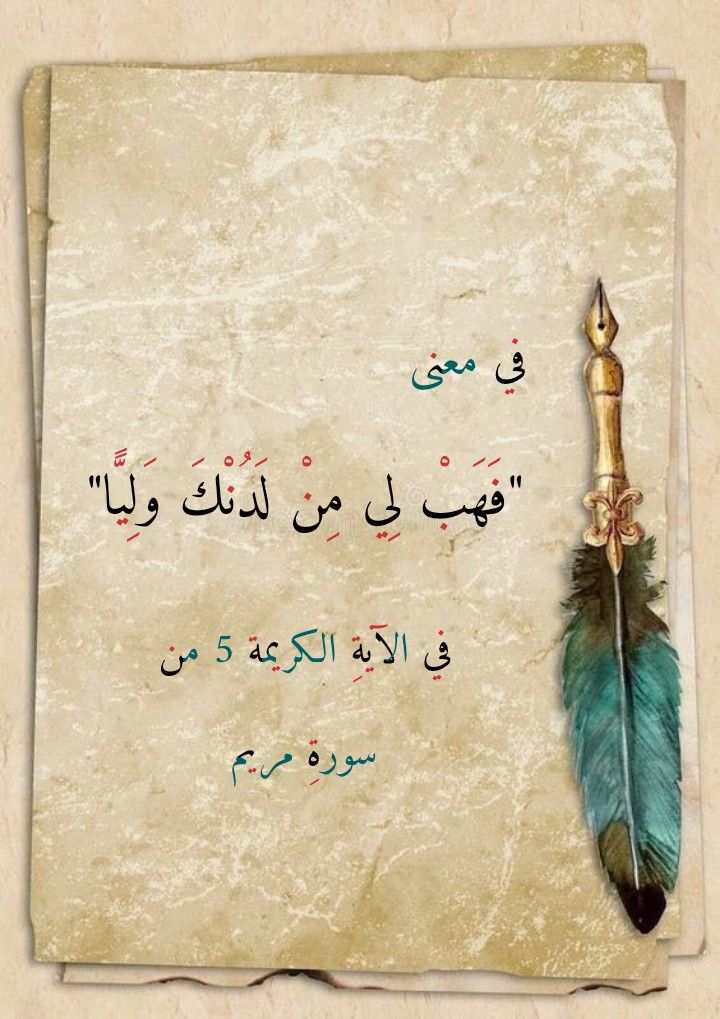 في معنى
"فَهَبْ لِي مِنْ لَدُنْكَ وَلِيًّا"
في الآيةِ الكريمة 5 من
سورةِ مريم